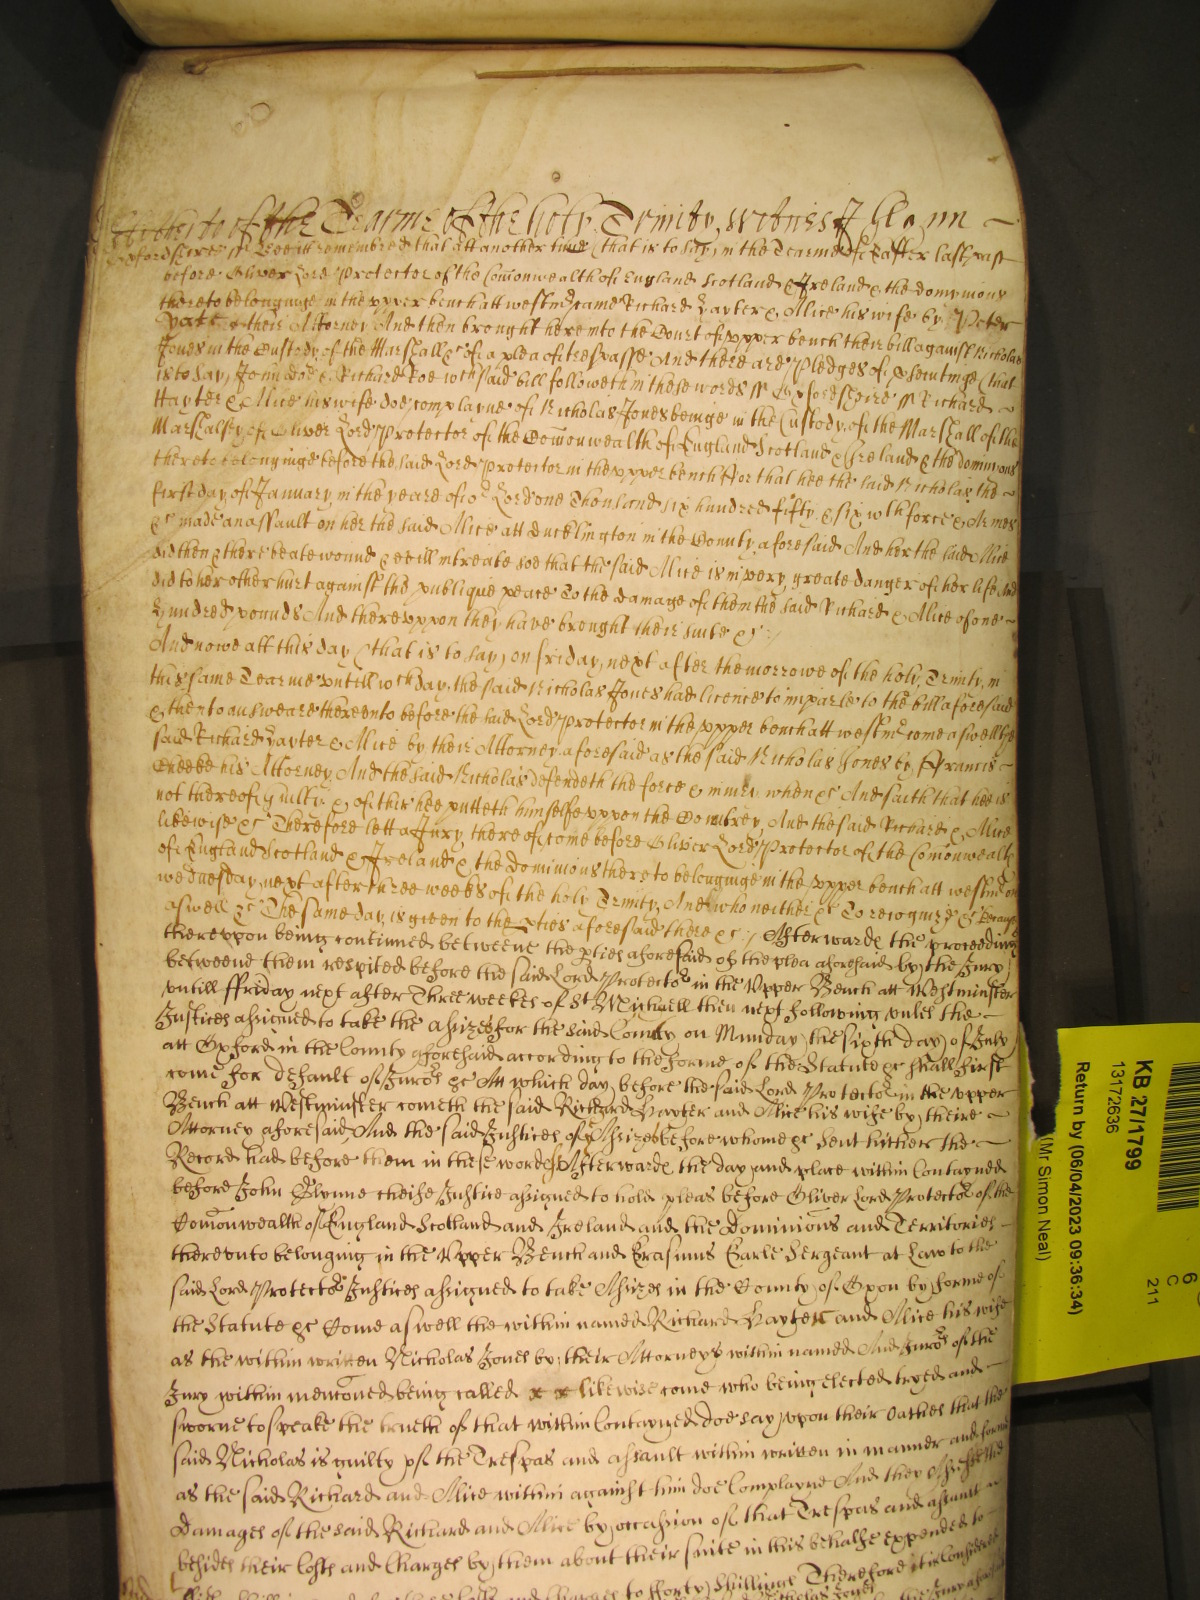 of the Tearme of the holy Trinity, witnes J Glynn
Oxfordshire ss Bee it remembred that att another time (that is to say, in the Tearme of Easter last past
before Oliver Lord Protector of the Comonwealth of England Scotland & Ireland & the dominions
thereto belonginge in the vpper bench att westmr came Richard Hayter & Alice his wife by Peter
their Attorney And then brought here into the Court of vpper bench their bill against Nicholas
Jones in the Custody, of the Marshall &c of a plea of trespasse And there are Pledges of psecutinge (that
is to say, John doe & Richard Roe wch said bill followeth in these words ss Oxfordshire ss Richard
Hayter & Alice his wife doe complayne of Nicholas Jones beinge in the Custody, of the Marshall of the
Marshalsey of Oliver Lord Protector of the Comonwealth of England Scotland & Ireland & the dominions
thereto belonginge before the said Lord Protector in the vpper bench ffor that hee the said Nicholas the
first day, of January, in the yeare of or Lord one Thousand six hundred fifty & six wth force & Armes
&c made an assault on her the said Alice att Ducklington in the County aforesaid And her the said Alice
did then & there beate wound & evill intreate soe that the said Alice is in very, greate danger of her life And
did to her other hurt against the publique peace To the damage of them the said Richard & Alice of one
hundred pounds And therevppon they have brought their suite &c
And nowe att this day (that is to say, on friday, next after the morrowe of the holy, Trinity, in
this same Tearme vntill wch day, the said Nicholas Jones had licence to imparle to the bill aforesaid
& then to answeare therevnto before the said Lord Protector in the vpper bench att westmr come aswell the
said Richard Hayter & Alice by their Attorney aforesaid as the said Nicholas Jones by, Francis
his Attorney, And the said Nicholas defendeth the force & iniury when &c And saith that hee is
not thereof guilty & of this hee putteth himselfe vppon the Countrey, And the said Richard & Alice
likewise &c Therefore lett a Jury, thereof come before Oliver Lord Protector of the Comonwealth
of England Scotland & Ireland & the Dominions thereto belonginge in the vpper bench att westmr on
wednesday, next after three weeks of the holy Trinity, And who neither &c To recognize &c Because
aswell &c The same day, is given to the pties aforesaid there &c Afterwards the proceedings
therevpon being continued betweene the pties aforesaid of the plea aforesaid by the Jury
betweene them respited before the said Lord Protector in the Vpper Bench att Westminster
vntill ffriday next after Three weekes of St Michaell then next following vnles the
Justices assigned to take the assizes for the said County on Munday the sixth day of July
att Oxford in the County aforesaid according to the forme of the Statute &c shall first
come for default of Jurors &c Att which day before the said Lord Protector in the vpper
Bench att Westminster cometh the said Richard Hayter and Alice his wife by theire
Attorney aforesaid And the said Justices of Assizes before whome &c sent hither the
Record had before them in these words Afterwards the day and place within Contayned
before John Glynne cheife Justice assigned to hold pleas before Oliver Lord Protector of the
Comonwealth of England Scotland and Ireland and the Dominions and Territories
therevnto belonging in the Vpper Bench and Erasmus Earle Sergeant at Law to the
said Lord Protector Justices assigned to take Assizes in the County of Oxon by forme of
the Statute &c Come aswell the within named Richard Hayter and Alice his wife
as the within written Nicholas Jones by their Attorneys within named And Jurors of the
Jury within menconed being called likewise come who being elected tryed and
sworne to speake the trueth of that within Contayned doe say vpon their oathes that the
said Nicholas is guilty of the Trespas and assault within written in manner and forme
as the said Richard and Alice within against him doe Complayne And they Assesse the
Damages of the said Richard and Alice by occassion of that Trespas and assault
besides their Costs and Charges by them about their suite in this behalfe expended to
and Charges to fforty Shillings Therefore it is Considered
Nicholas Jones
KB 27/1799
13172636
Return by (06/04/2023 09:36:34)
(Mr Simon Neal)
6
C
211